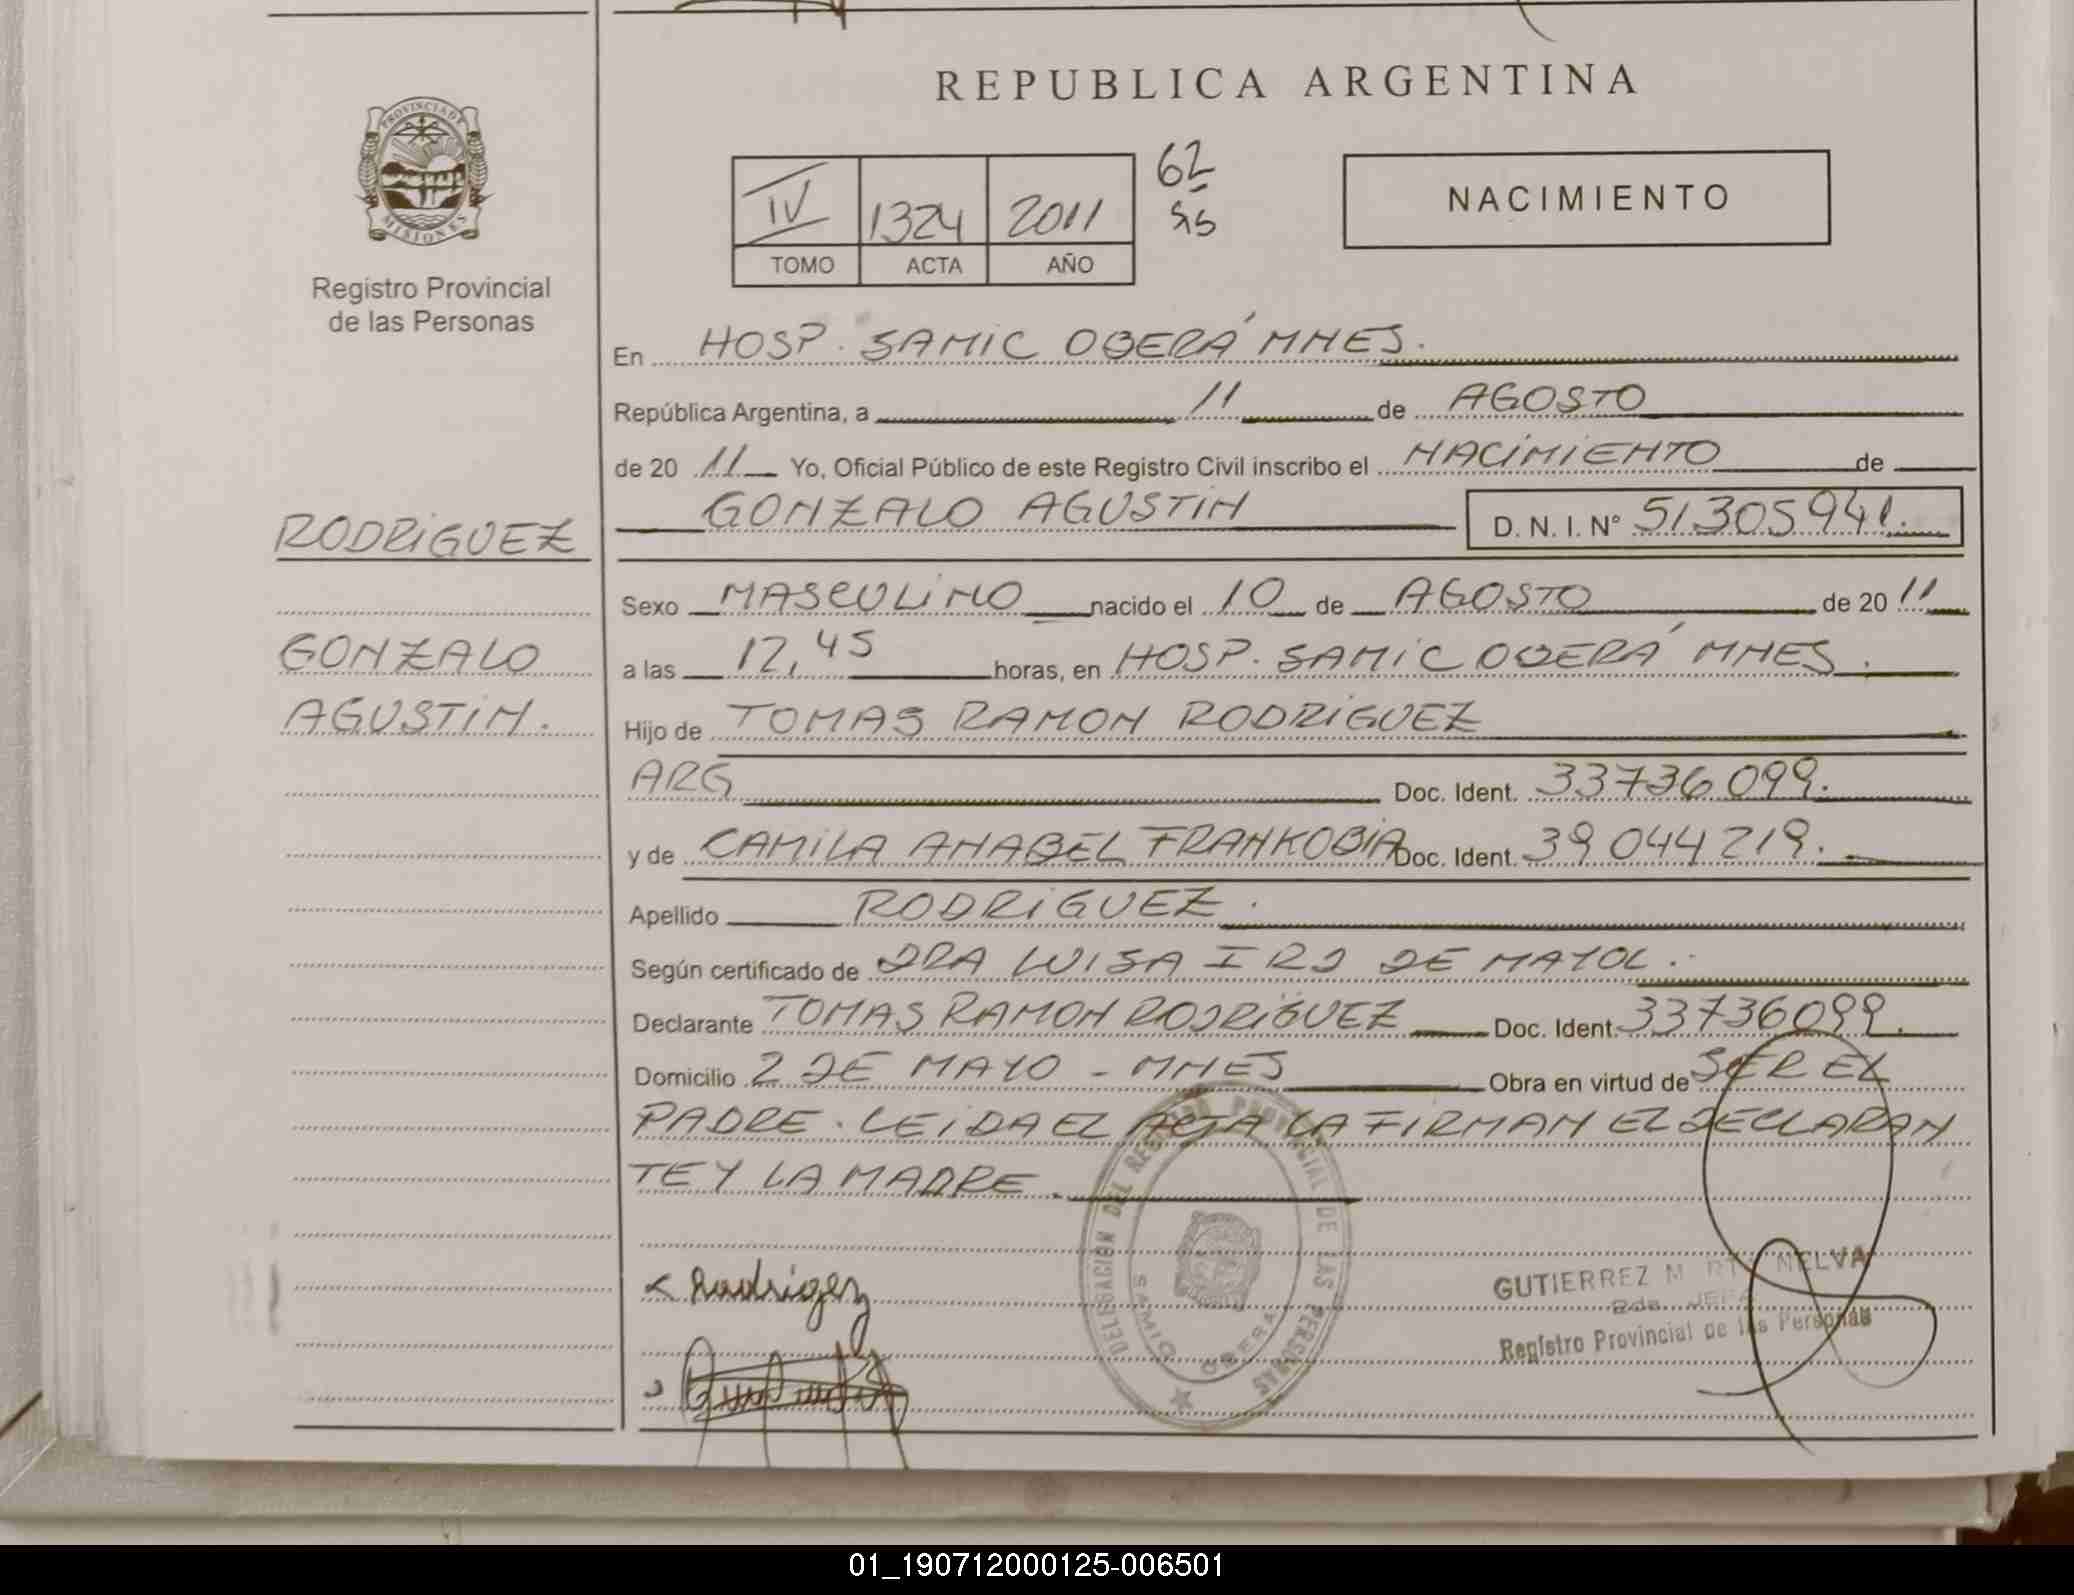 REPUBLICA ARGENTINA
PROVINCIA DE
MISIONES
Registro Provincial
de las Personas
IV 1324 2011
TOMO ACTA AÑO
62
NACIMIENTO
En HOSP. SAMIC OBERÁ MNES.
República Argentina, a 11 de AGOSTO
de 20 11 Yo, Oficial Público de este Registro Civil inscribo el NACIMIENTO de
GONZALO AGUSTIN D. N. I. N° 51.305.941.
RODRIGUEZ
GONZALO
AGUSTIN.
Sexo MASCULINO nacido el 10 de AGOSTO de 20 11
a las 12,45 horas, en HOSP. SAMIC OBERÁ MNES.
Hijo de TOMAS RAMON RODRIGUEZ
ARG Doc. Ident. 33736099.
y de CAMILA ANABEL FRANKOBIA Doc. Ident. 39 044 219.
Apellido RODRIGUEZ.
Según certificado de DRA LUISA DE MAYOL.
Declarante TOMAS RAMON RODRIGUEZ Doc. Ident. 33736099.
Domicilio 2 DE MAYO - MNES Obra en virtud de SER EL
PADRE. LEIDA EL ACTA LA FIRMAN EL DECLARAN
TE Y LA MADRE.
DELEGACIÓN DEL REGISTRO PROVINCIAL DE LAS PERSONAS
SAMIC OBERA
Rodrigez
GUTIERREZ NELVA
2da. JEFA
Registro Provincial de las Personas
01_190712000125-006501